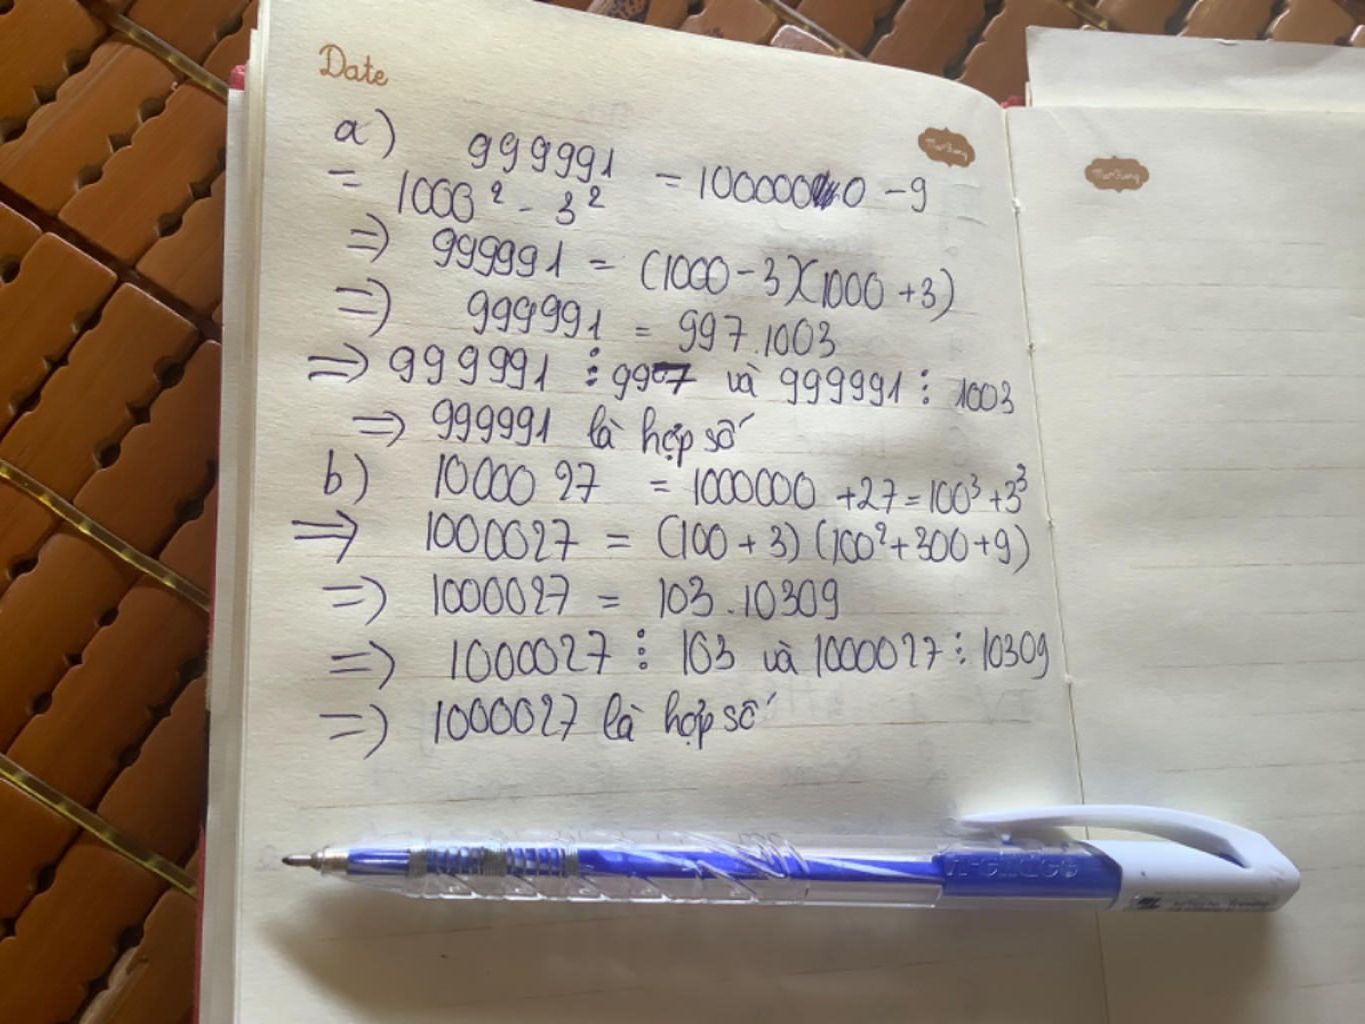 Date
a) 999991 = 1000000 - 9
= 1000² - 3²
=> 999991 = (1000 - 3)(1000 + 3)
=> 999991 = 997.1003
=> 999991 ⋮ 997 và 999991 ⋮ 1003
=> 999991 là hợp số
b) 1000027 = 1000000 + 27 = 100³ + 3³
=> 1000027 = (100 + 3)(100² + 300 + 9)
=> 1000027 = 103.10309
=> 1000027 ⋮ 103 và 1000027 ⋮ 10309
=> 1000027 là hợp số